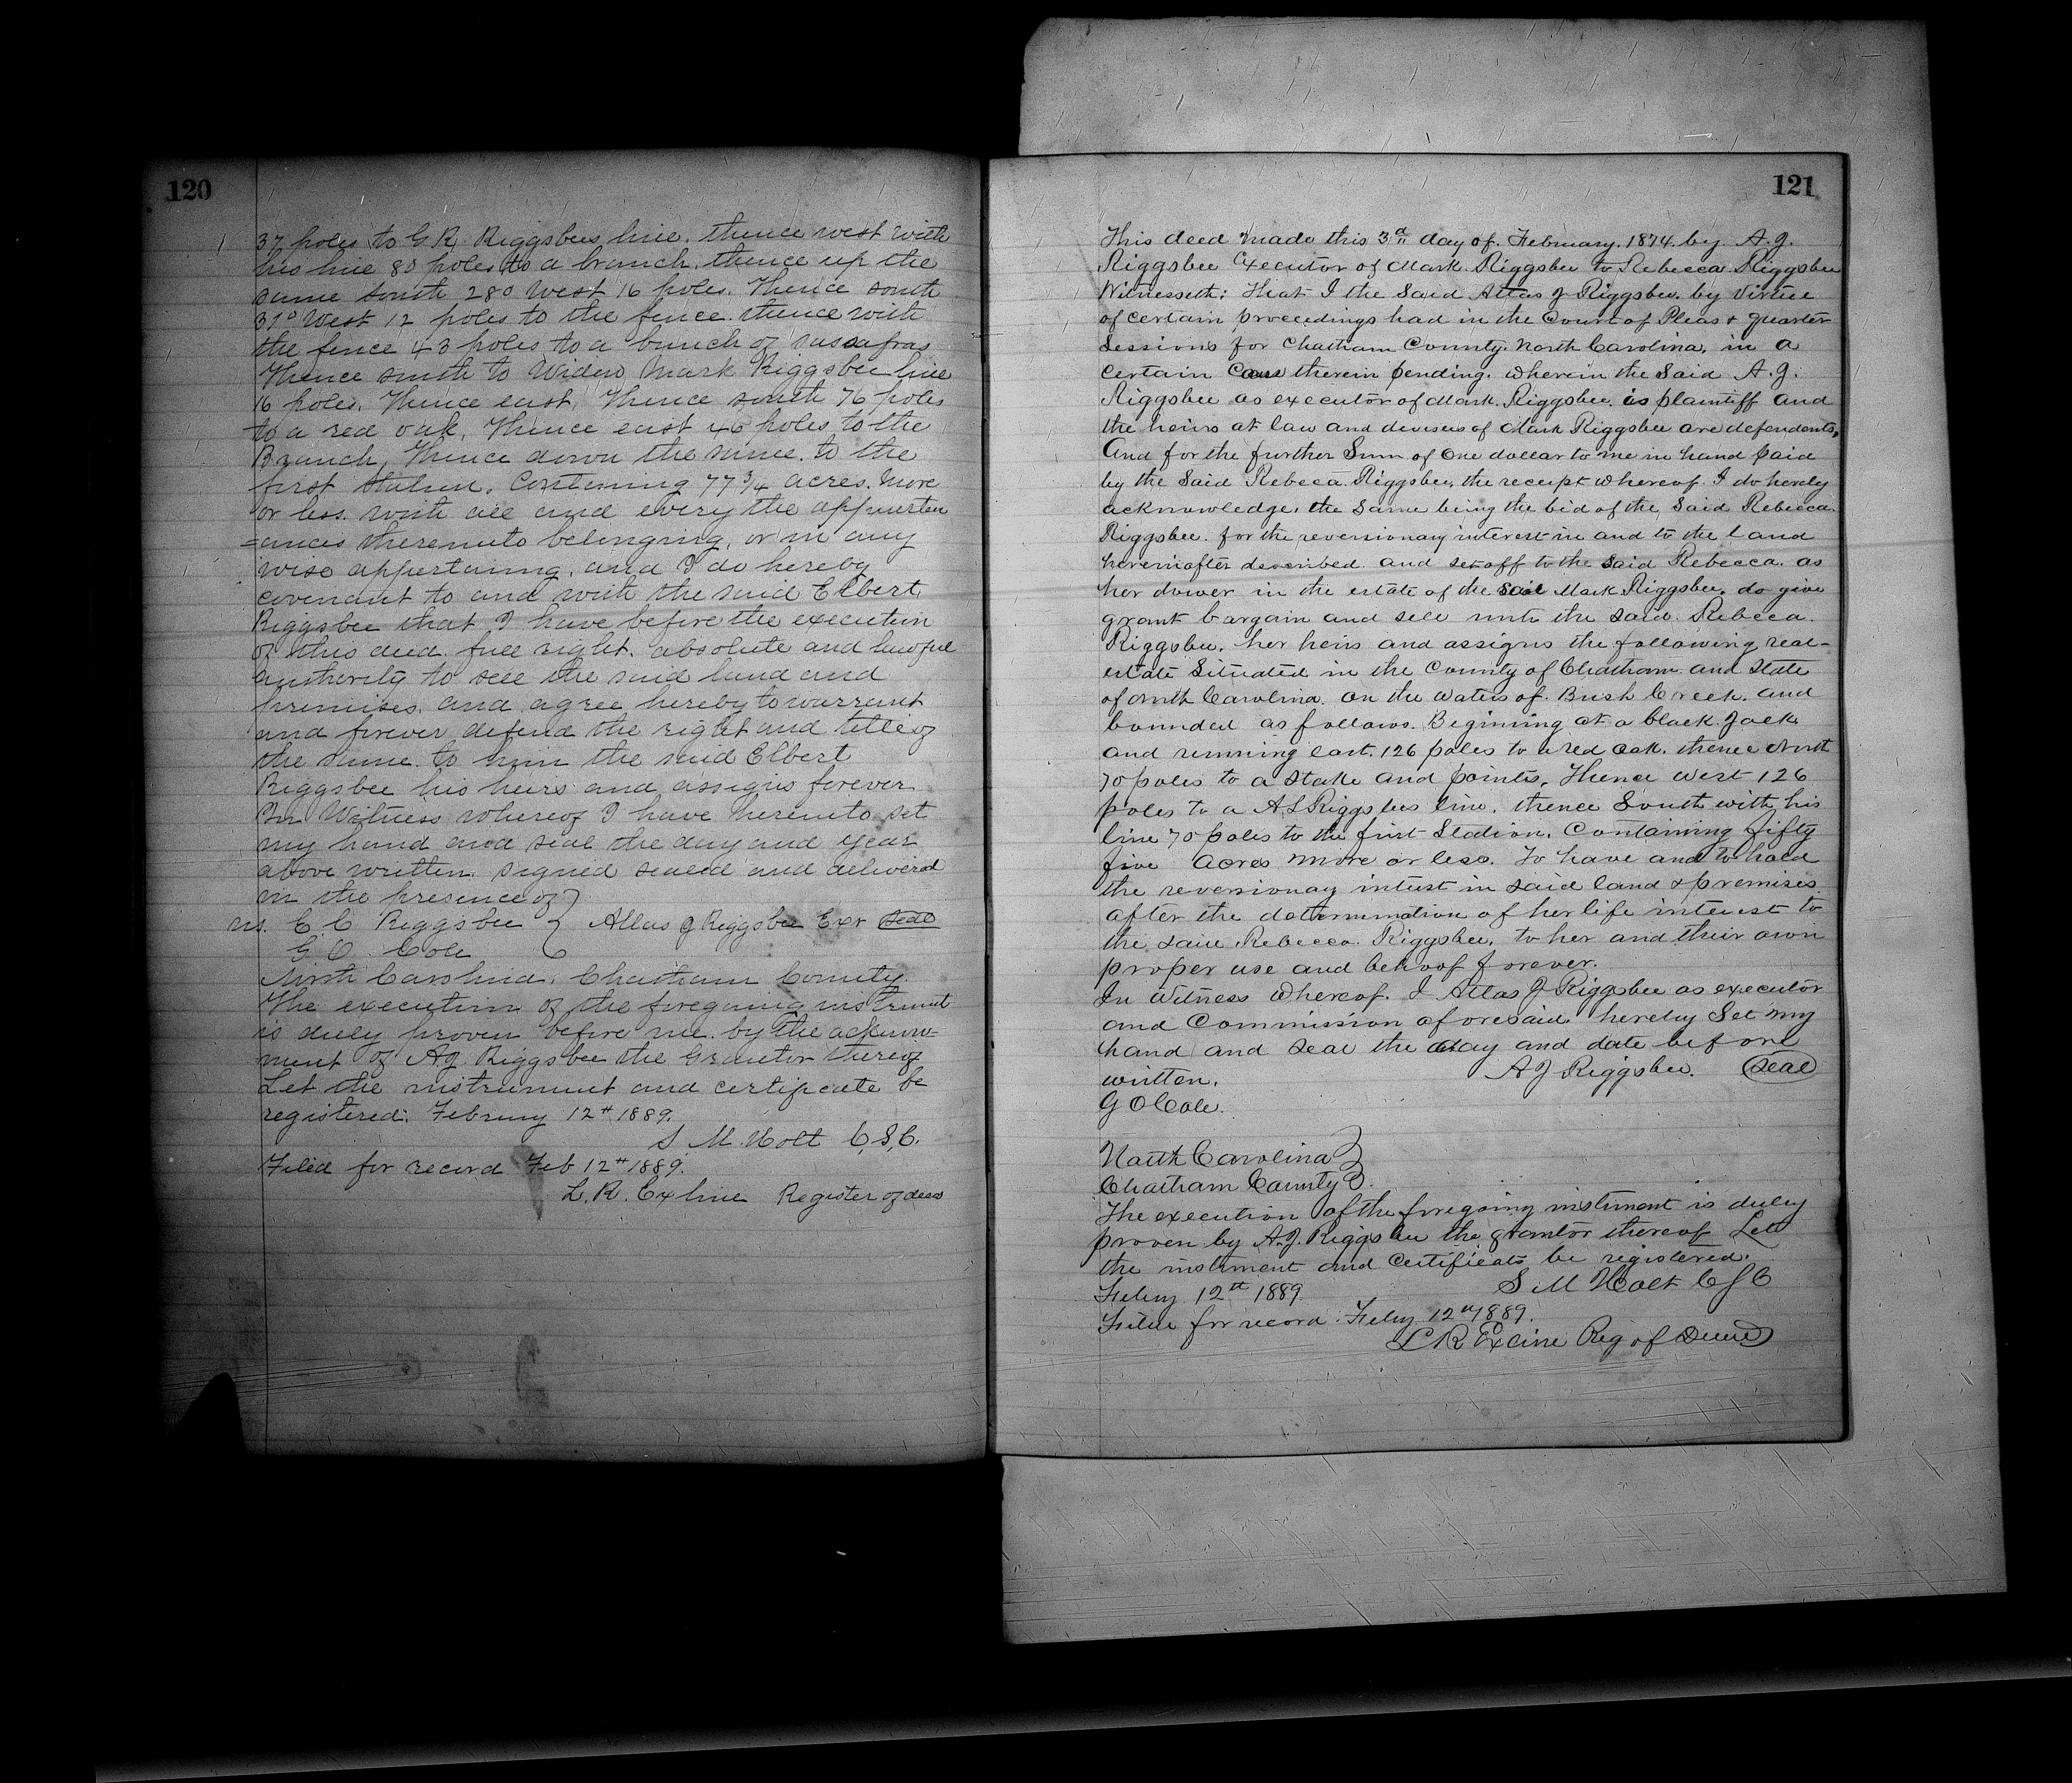 120
37 poles to G R Riggsbees line. thence west with
his line 80 poles to a branch. thence up the
same south 28° West 16 poles. Thence south
37° West 12 poles to the fence. thence with
the fence 43 poles to a bunch of sassafras
Thence south to Widow Mark Riggsbee line
16 poles. Thence east, Thence south 76 poles
to a red oak, Thence east 46 poles to the
Branch, Thence down the same. to the
first station. Containing 77 3/4 acres. more
or less. with all and every the appurten
=ances thereunto belonging, or in any
wise appertaining, and I do hereby
covenant to and with the said Elbert
Riggsbee that I have before the execution
of this deed. full right. absolute and lawful
authority to sell the said land and
premises, and agree hereby to warrant
and forever defend the right and title of
the same. to him the said Elbert
Riggsbee his heirs and assigns forever
In Witness whereof I have hereunto set
my hand and seal the day and year
above written. signed sealed and delivered
in the presence of
E. C. Riggsbee } Atlas J Riggsbee Exr Seal
G O. Cole
North Carolina, Chatham County.
The execution of the foregoing instrument
is duly proven before me. by the acknow-
ment of A J Riggsbee the Grantor thereof
Let the instrument and certificate be
registered. February 12th 1889.
S. M. Holt C.S.C.
Filed for record Feb 12th 1889.
L. R. Exline Register of deeds
121
This deed made this 3d day of. February. 1874. by A. J.
Riggsbee Executor of Mark Riggsbee to Rebecca Riggsbee
Witnesseth: That I the Said Atlas J Riggsbee. by Virtue
of certain proceedings had in the Court of Pleas & quarter
Sessions for Chatham County. North Carolina, in a
certain Case therein pending. wherein the Said A. J.
Riggsbee as executor of Mark. Riggsbee. is plaintiff and
the heirs at law and devisees of Mark Riggsbee are defendants,
And for the further Sum of One dollar to me in hand paid
by the Said Rebecca. Riggsbee, the receipt whereof I do hereby
acknowledge, the Same being the bid of the Said Rebecca.
Riggsbee. for the reversionary interest in and to the land
hereinafter described and set off to the Said Rebecca. as
her dower in the estate of the Said Mark Riggsbee, do give
grant bargain and sell unto the said. Rebecca.
Riggsbee, her heirs and assigns the following real-
estate Situated in the County of Chatham and State
of North Carolina on the waters of. Bush Creek. and
bounded as follows. Beginning at a black Jack
and running east. 126 poles to a red oak. thence North
70 poles to a stake and pointers, Thence West 126
poles to a A L Riggsbees line. thence South with his
line 70 poles to the first Station. Containing fifty
five acres more or less. To have and to hold
the reversionay intrest in said land & premises
after the determination of her life interest to
the said Rebecca. Riggsbee, to her and their own
proper use and behoof forever.
In Witness Whereof. I Atlas J Riggsbee as executor
and Commission aforesaid hereby Set my
hand and seal the day and date before
written. A J Riggsbee. Seal
G O Cole.
North Carolina }
Chatham County }.
The execution of the foregoing instrment is duley
proven by A. J. Riggsbee the grantor thereof Let
the instrment and Certificate be registered.
Feby 12th 1889. S M Holt C S C
Filed for record Feby 12th 1889.
L R Exline Reg of Deeds